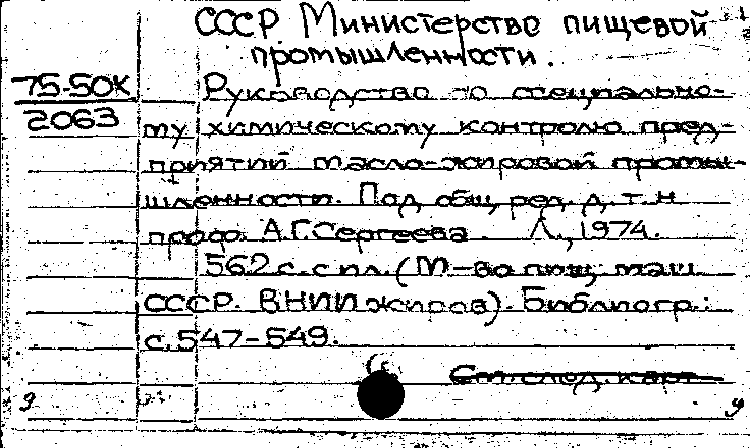 СССР Министерство пищевой
промышленности.
75-50К
2063
Руководство по специально-
му химическому контролю пред-
приятий масло-жировой промы-
шленности. Под общ. ред. д. т. н.
проф. А.Г.Сергеева. Л., 1974.
562 с. с ил. (М-во пищ.
СССР. ВНИИ жиров). Библиогр.:
с. 547-549.
См. след. карт.
9